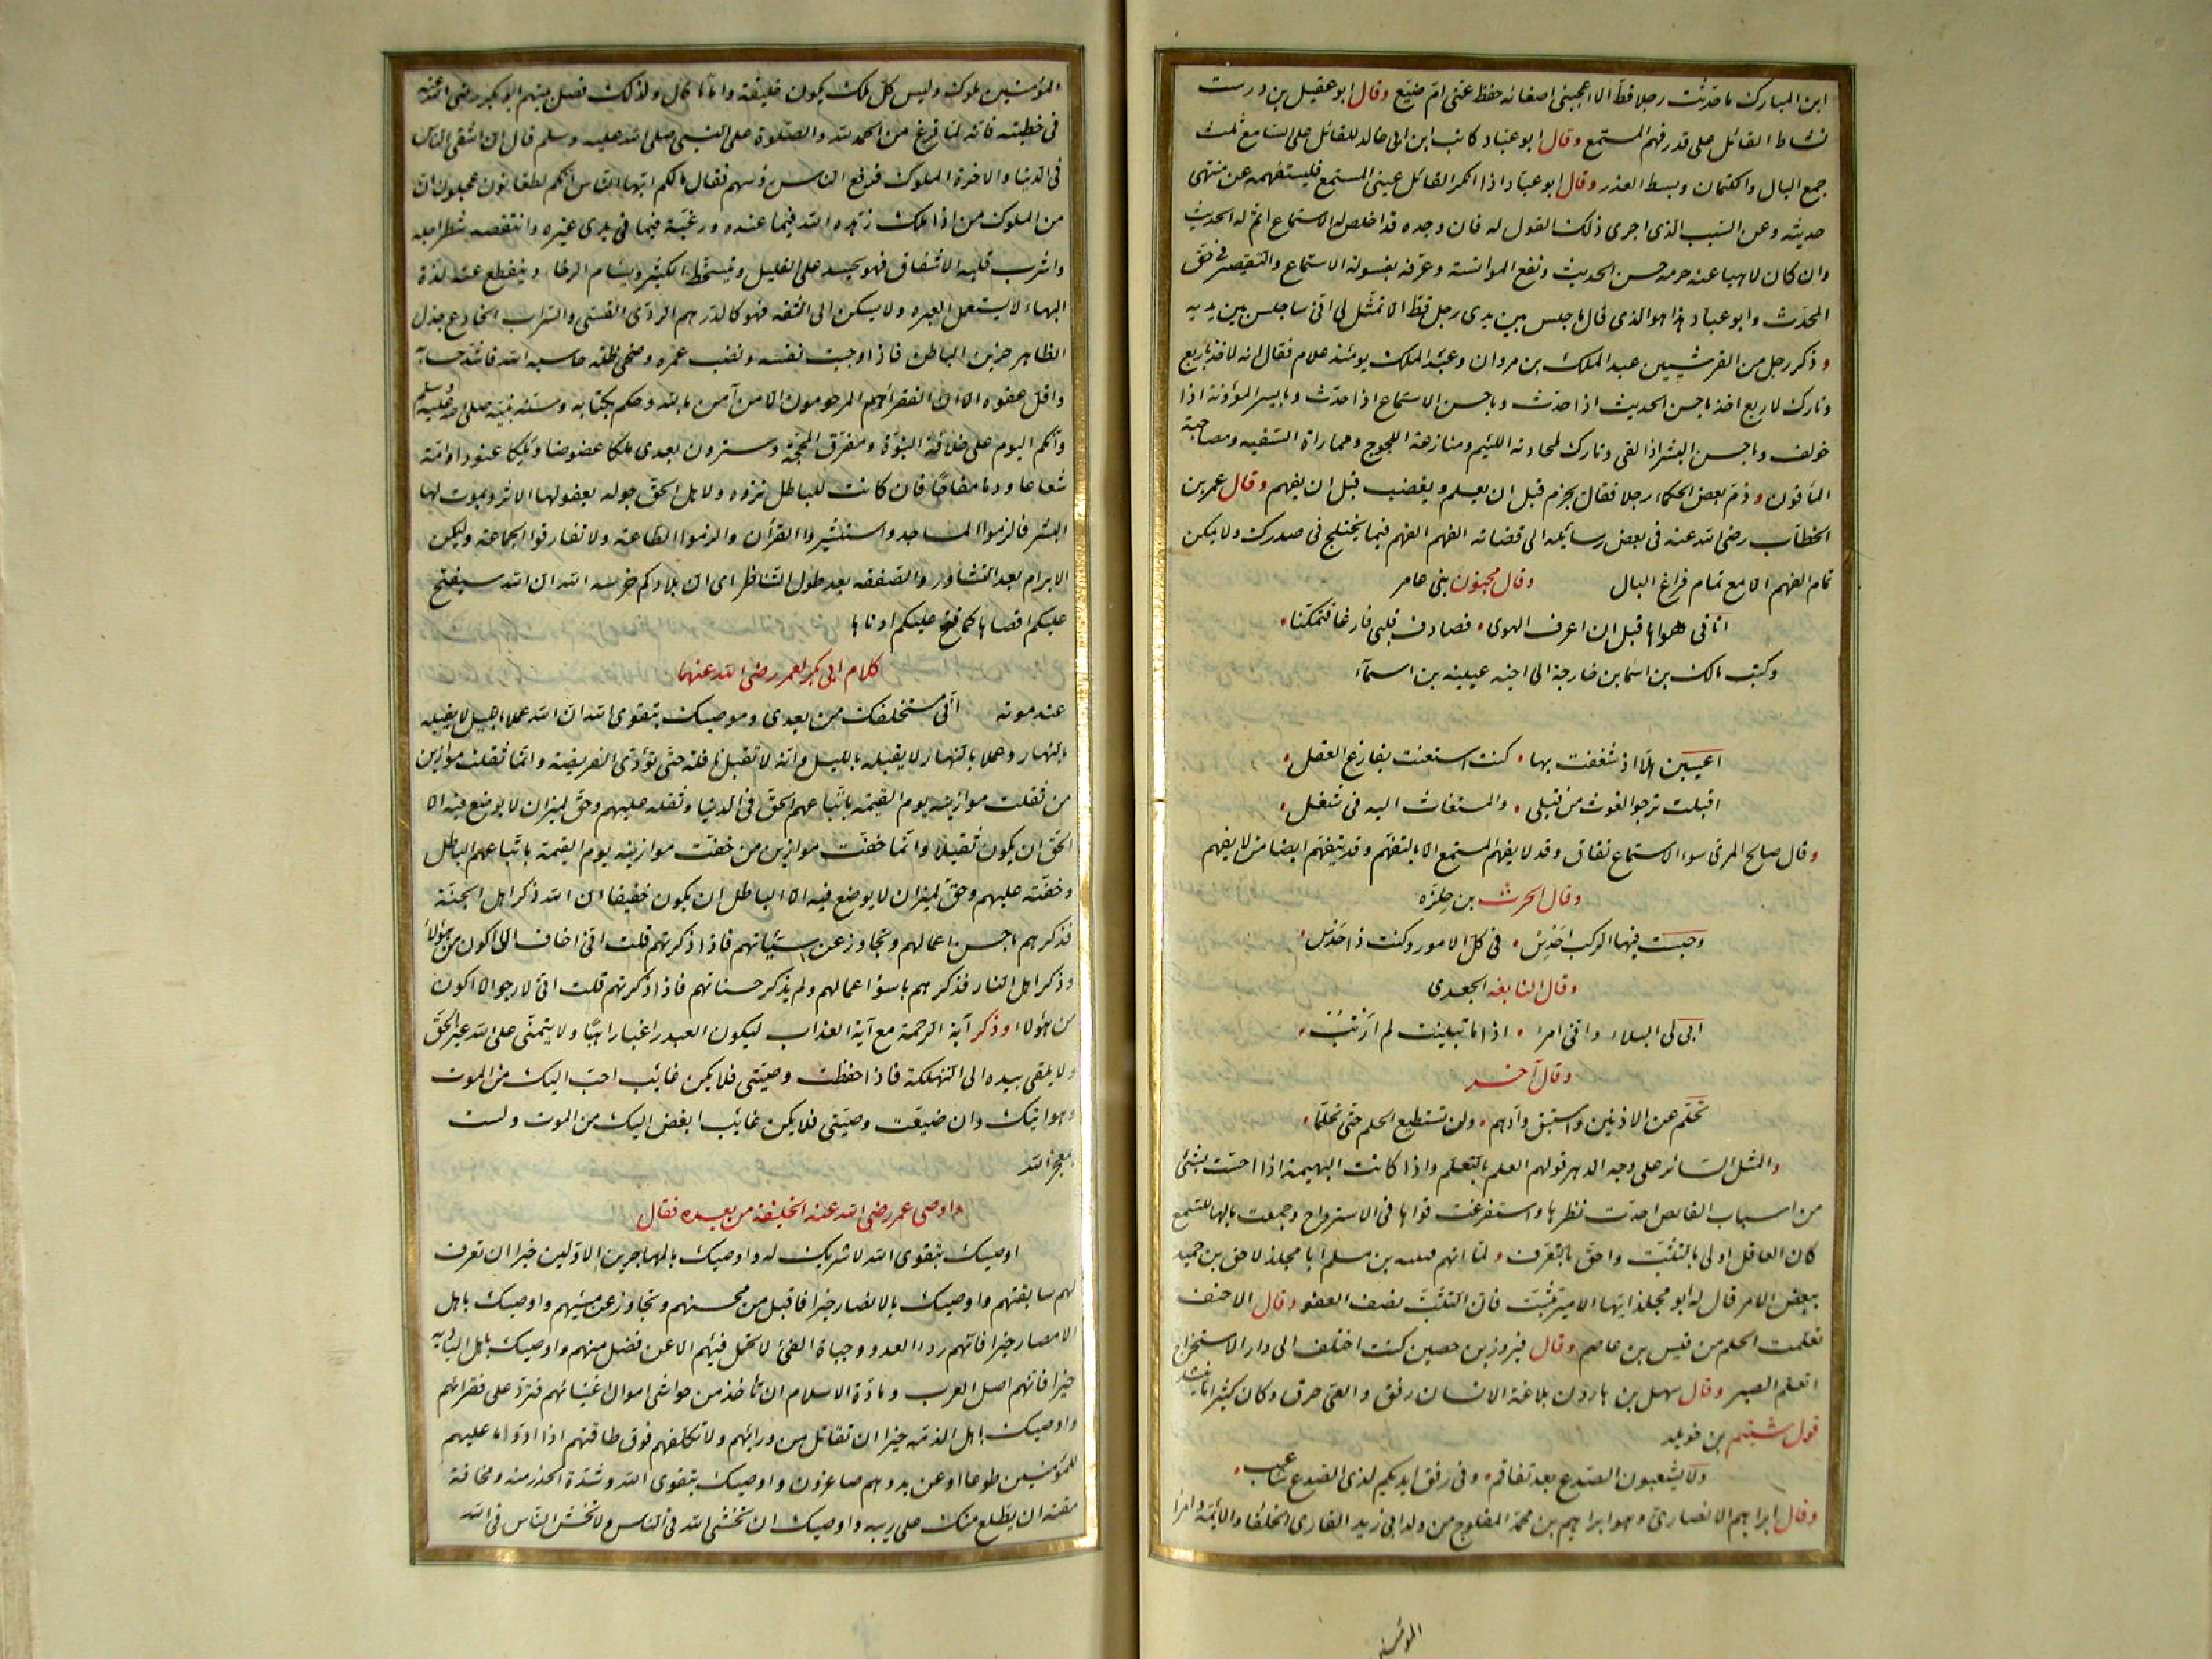 ابن المبارك ما حدّثت رجلا قطّ الا اعجبنى اصغائه حفظ عنّى ام ضيّع وقال ابو عقيل بن درست
نشاط القائل على قدر فهم المستمع وقال ابو عباد كاتب ابن ابى خالد للقائل على السّامع ثلث
جمع البال والكتمان وبسط العذر وقال ابو عباد اذا انكر القائل عينى المستمع فليستفهمه عن منتهى
حديثه وعن السّبب الّذى اجرى ذلك القول له فان وجده قد اخلص له الاستماع اتمّ له الحديث
وان كان لاهيا عنه حرمه حسن الحديث ونفع الموانسة وعرّفه بفسولة الاستماع والتّقصير فى حقّ
المحدّث وابو عباد هذا هو الذى قال ما جلس بين يدى رجل قطّ الا تمثّل لى انّى ساجلس بين يديه
وذكر رجل من القرشيين عبد الملك بن مروان وعبد الملك يومئذ غلام فقال انه لاخذ باربع
وتارك لاربع اخذ باحسن الحديث اذا حدّث وباحسن الاستماع اذا حدّث وبايسر المؤونة اذا
خولف وباحسن البشر اذا لقى وتارك لمحادثة اللئيم ومنازعة اللجوج ومماراة السّفيه ومصاحبة
المأفون وذمّ بعض الحكماء رجلا فقال يجزم قبل ان يعلم ويغضب قبل ان يفهم وقال عمر بن
الخطّاب رضى الله عنه فى بعض رسائله الى قضاته الفهم الفهم فيما يختلج فى صدرك ولا يمكن
تمام الفهم الا مع تمام فراغ البال وقال مجنون بنى عامر
اتانى هواها قبل ان اعرف الهوى فصادف قلبى فارغا فتمكّنا
وكتب مالك بن اسما بن خارجة الى اخيه عيينه بن اسماء
اعيين هلّا اذ شغفت بها كنت استعنت بفارغ العقل
اقبلت ترجو الغوث من قبلى والمستغاث اليه فى شغل
وقال صالح المرى سوء الاستماع نفاق وقد لا يفهم المستمع الا بالتفهّم وقد يتفهّم ايضا من لا يفهم
وقال الحرث بن حلزه
وحبست فيها الركب احدس فى كلّ الامور وكنت ذا حدس
وقال النابغه الجعدى
ابى لى البلاء وانّى امرء اذا ما تبيّنت لم ارتب
وقال آخر
تحلّم عن الادنين واستبق ودّهم ولن تستطيع الحلم حتّى تحلّما
والمثل السّائر على وجه الدهر قولهم العلم بالتعلّم واذا كانت البهيمة اذا احسّت بشئ
من اسباب القانص احدّت نظرها واستفرغت قواها فى الاسترواح وجمعت بالها للتسمّع
كان العاقل اولى بالتثبّت واحقّ بالتعرّف ولمّا اتهم قتيبه بن مسلم ابا مجلز لاحق بن حميد
ببعض الامر قال له ابو مجلز ايّها الامير تثبّت فانّ التثبّت نصف العفو وقال الاحنف
تعلّمت الحلم من قيس بن عاصم وقال فيروز بن حصين كنت اختلف الى دار الاستخراج
اتعلّم الصبر وقال سهل بن هارون بلاغة الانسان رفق والعىّ خرق وكان كثيرا ما ينشد
قول شتيم بن خويلد
ولا يشعبون الصّدع بعد تفاقم وفى رفق ايديكم لذى الصّدع شاعب
وقال ابراهيم الانصارىّ وهو ابراهيم بن محمّد المفلوج من ولد ابى زيد القارى الخلفا والائمّة وامرا
المؤمنين
المؤمنين ملوك وليس كل ملك يكون خليفة واماما قال ولذلك فصل بينهم ابو بكر رضى الله عنه
فى خطبته فانّه لمّا فرغ من الحمد لله والصّلوة على النّبى صلى الله عليه وسلم قال ان اشقى النّاس
فى الدّنيا والاخرة الملوك فرفع الناس رؤسهم فقال ما لكم ايّها النّاس انّكم لطعّانون عجلون انّ
من الملوك من اذا ملك زهّده الله فيما عنده ورغّبه فيما فى يدى غيره وانتقصه شطر اجله
واشرب قلبه الاشفاق فهو يحسد على القليل ويتسخّط الكثير ويسأم الرخا وينقطع عنه لذّة
البهاء لا يستعمل العبره ولا يسكن الى الثقه فهو كالدّرهم الردّى القسّى والسّراب الخادع جذل
الظاهر حزين الباطن فاذا وجبت نفسه ونضب عمره وضحى ظلّه حاسبه الله فاشدّ حسابه
واقلّ عفوه الا ان الفقراء هم المرحومون الا من آمن بالله وحكم بكتابه وسنّة نبيّه صلى الله عليه وسلم
وانّكم اليوم على خلافة النبوّة ومفرق المحجّة وسترون بعدى ملكا عضوضا وملكا عنودا وامّة
شعاعا ودما مفاحا فان كانت للباطل نزوه ولاهل الحقّ جوله يعفو لها الاثر ويموت لها
البشر فالزموا المساجد واستشيروا القرآن والزموا الطّاعة ولا تفارقوا الجماعة وليكن
الابرام بعد التشاور والصّفقه بعد طول التناظر اى بلادكم خرسه الله ان الله سيفتح
عليكم اقصاها كما فتح عليكم ادناها
كلام ابى بكر لعمر رضى الله عنهما
عند موته انّى مستخلفك من بعدى وموصيك بتقوى الله انّ لله عملا بالليل لا يقبله
بالنهار وعملا بالنهار لا يقبله بالليل وانّه لا تقبل نافلة حتّى تؤدّى الفريضه وانّما ثقلت موازين
من ثقلت موازينه يوم القيمة باتّباعهم الحقّ فى الدنيا وثقله عليهم وحقّ لميزان لا يوضع فيه الا
الحقّ ان يكون ثقيلا وانّما خفّت موازين من خفّت موازينه يوم القيمة باتّباعهم الباطل
وخفّته عليهم وحقّ لميزان لا يوضع فيه الا الباطل ان يكون خفيفا ان الله ذكر اهل الجنّة
فذكرهم باحسن اعمالهم وتجاوز عن سيّئاتهم فاذا ذكرتهم قلت انّى اخاف الا اكون من هؤلاء
وذكر اهل النار فذكرهم باسوء اعمالهم ولم يذكر حسناتهم فاذا ذكرتهم قلت انّى لارجو الا اكون
من هؤلاء وذكر آية الرحمة مع آية العذاب ليكون العبد راغبا راهبا ولا يتمنّى على الله غير الحقّ
ولا يلقى بيده الى التهلكة فاذا حفظت وصيّتى فلا يكن غائب احبّ اليك من الموت
وهو آتيك وان ضيّعت وصيّتى فلا يكن غائب ابغض اليك من الموت ولست
بمعجز الله
واوصى عمر رضى الله عنه الخليفة من بعده فقال
اوصيك بتقوى الله لا شريك له واوصيك بالمهاجرين الاوّلين خيرا ان تعرف
لهم سابقتهم واوصيك بالانصار خيرا فاقبل من محسنهم وتجاوز عن مسيئهم واوصيك باهل
الامصار خيرا فانّهم ردء العدو وجباة الفئ لا تحمل فيئهم الا عن فضل منهم واوصيك باهل البادية
خيرا فانّهم اصل العرب ومادّة الاسلام ان تأخذ من حواشى اموال اغنيائهم فتردّ على فقرائهم
واوصيك باهل الذمّه خيرا ان تقاتل من ورائهم ولا تكلّفهم فوق طاقتهم اذا ادّوا ما عليهم
للمؤمنين طوعا او عن يد وهم صاغرون واوصيك بتقوى الله وشدّة الحذر منه ومخافة
مقته ان يطّلع منك على ريبه واوصيك ان تخشى الله فى الناس ولا تخش النّاس فى الله